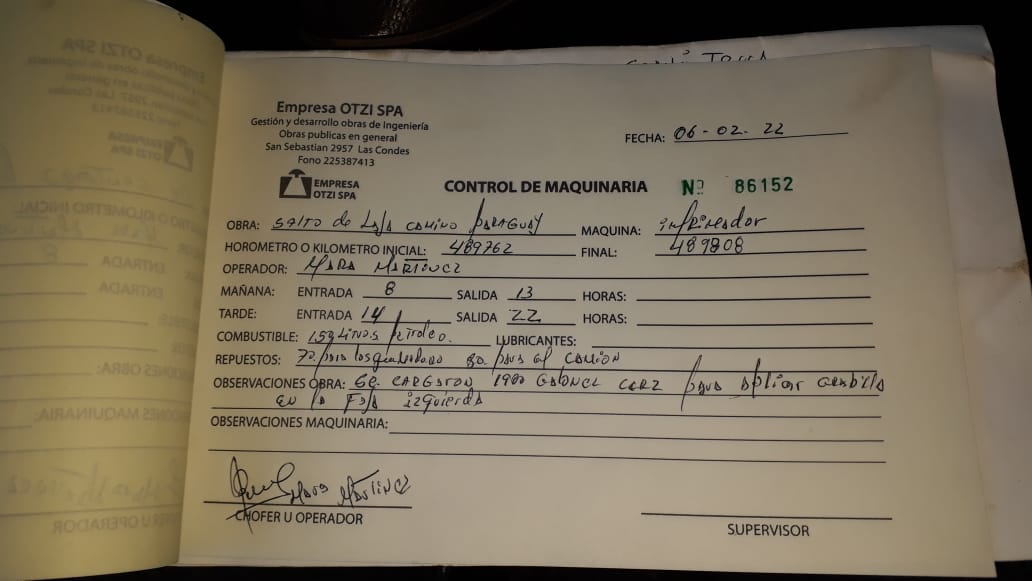 Empresa OTZI SPA
Gestión y desarrollo obras de Ingeniería
Obras publicas en general
San Sebastian 2957 Las Condes
Fono 225387413
EMPRESA
OTZI SPA
FECHA: 06-02-22
CONTROL DE MAQUINARIA Nº 86152
OBRA: SALTO de LAJA CAMINO PARAGUAY MAQUINA: imprimador
HOROMETRO O KILOMETRO INICIAL: 489762 FINAL: 489808
OPERADOR: MARA MARTINEZ
MAÑANA: ENTRADA 8 SALIDA 13 HORAS:
TARDE: ENTRADA 14 SALIDA 22 HORAS:
COMBUSTIBLE: Litros petroleo. LUBRICANTES:
REPUESTOS: 70 para los quemadores 80 para el CAMION
OBSERVACIONES OBRA: Se CARGARON 1900 para Aplicar Gravilla
EN la FAJA izquierda
OBSERVACIONES MAQUINARIA:
MARA MARTINEZ
CHOFER U OPERADOR
SUPERVISOR